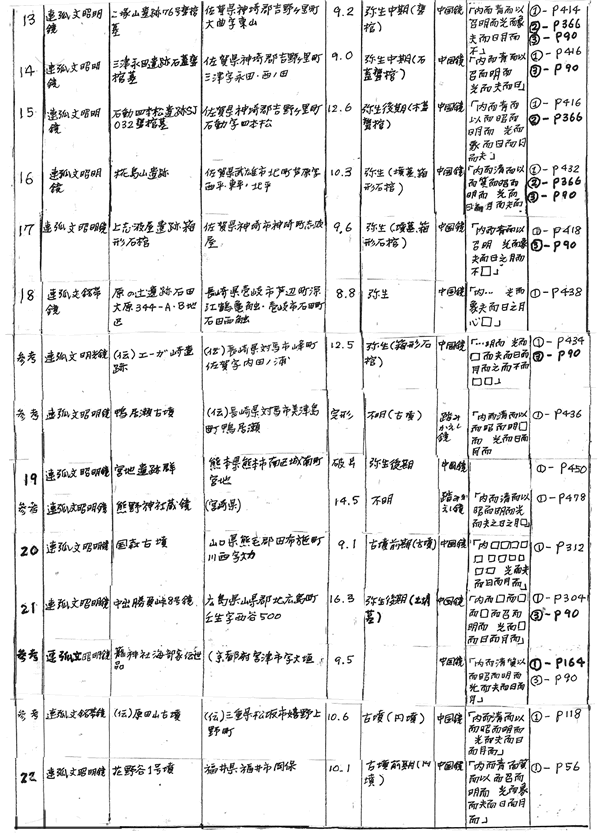 13 連弧文昭明鏡 二塚山遺跡76号甕棺墓 佐賀県神埼郡吉野ヶ里町大曲字東山 9.2 弥生中期(甕棺) 中国鏡 「内而青而以召明而光而象夫而日月而不」 ①-P414 ②-P366 ③-P90
14 連弧文昭明鏡 三津永田遺跡石蓋甕棺墓 佐賀県神埼郡吉野ヶ里町三津字永田・西ノ田 9.0 弥生中期(石蓋甕棺) 中国鏡 「内而青而以召而明而光而夫而日」 ①-P416 ③-P90
15 連弧文昭明鏡 石動四本松遺跡SJ032甕棺墓 佐賀県神埼郡吉野ヶ里町石動字四本松 12.6 弥生後期(木蓋甕棺) 中国鏡 「内而青而以而昭而明而 光而象而日而月而夫」 ①-P416 ②-P366
16 連弧文昭明鏡 椛島山遺跡 佐賀県武雄市北町芦原字西平・東平・北平 10.3 弥生(墳墓.箱形石棺) 中国鏡 「内而清而以而箕而昭而明而 光而夫而日月而夫而 ①-P432 ②-P366 ③-P90
17 連弧文昭明鏡 上志波屋遺跡.箱形石棺 佐賀県神埼市神埼町志波屋 9.6 弥生(墳墓.箱形石棺) 中国鏡 「内而青而以召明 光而象夫而日之月而不□」 ①-P418 ③-P90
18 連弧文銘帯鏡 原の辻遺跡石田大原344-A・B地区 長崎県壱岐市芦辺町深江鶴亀触・壱岐市石田町石田西触 8.8 弥生 中国鏡 「内… 光而象夫而日之月心□」 ①-P438
参考 連弧文明光鏡 (伝)エーガ崎遺跡 (伝)長崎県対馬市峰町佐賀字内田ノ浦 12.5 弥生(箱形石棺) 中国鏡 「…明而 光而□而夫而日而月而之而不而□□」 ①-P434 ③-P90
参考 連弧文昭明鏡 鴨居瀬古墳 (伝)長崎県対馬市美津島町鴨居瀬 完形 不明(古墳) 踏みかえし鏡 「内而清而以而昭而明□而 光而日而月而 ①-P436
19 連弧文昭明鏡 宮地遺跡群 熊本県熊本市南区城南町宮地 破片 弥生後期 中国鏡 ①-P450
参考 連弧文昭明鏡 熊野神社蔵鏡 (宮崎県) 14.5 不明 踏みかえし鏡 「内而清而以昭而明而光而夫之日之月□」 ①-P478
20 連弧文昭明鏡 国森古墳 山口県熊毛郡田布施町川西字大力 9.1 古墳前期(古墳) 中国鏡 「内□□□□□□□□□□□ 光而夫而日而月而」 ①-P312
21 連弧文昭明鏡 中出勝負峠8号鏡 広島県山県郡北広島町壬生字西谷500 16.3 弥生後期(土壙墓) 中国鏡 「内而□而□而□而召而明而 光而□而日而月而 ①-P304 ③-P90
参考 連弧文昭明鏡 籠神社海部家伝世品 (京都府宮津市字大垣 9.5 「内而清質以而昭而明而光而夫而日而月」 ①-P164 ③-P90
参考 連弧文銘帯鏡 (伝)原田山古墳 (伝)三重県松坂市嬉野上野町 10.6 古墳(円墳) 中国鏡 「内而清而以而昭而明而 光而夫而日而月而」 ①-P118
22 連弧文昭明鏡 花野谷1号墳 福井県福井市間保 10.1 古墳前期(円墳) 中国鏡 「内而青而質而以而召而明而 光而象而夫而日而月而」 ①-P56